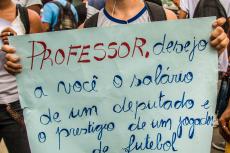 PROFESSOR, desejo
a você o salário
de um deputado e
o prestígio de um jogador
de futebol